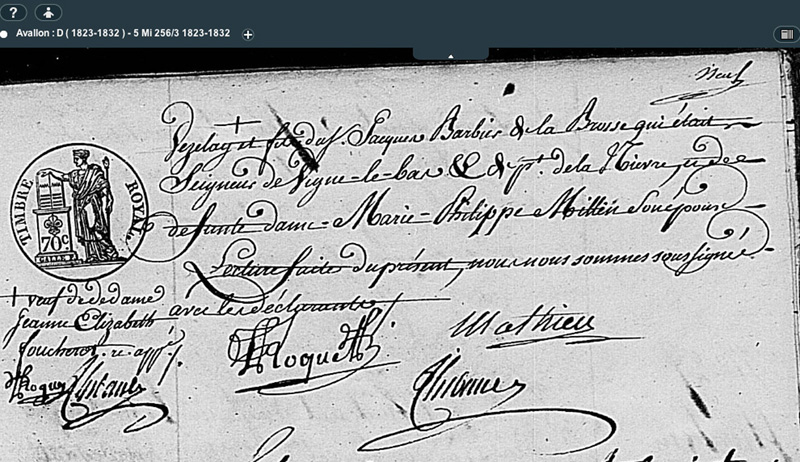 ?
Avallon : D ( 1823-1832 ) - 5 Mi 256/3 1823-1832
neuf
Vezelay et fils du s.r Jacques Barbier de la Brosse qui était
Seigneur de Vigne-le-bas & dep.t de la Nievre, et de
defunte dame Marie-Philippe Millin son épouse
Lecture faite du présent, nous nous sommes soussigné
avec les déclarants
TIMBRE ROYAL
70c.
+ veuf de dedame
Jeanne Elizabeth
foucherot. re app.
Hoquet
Mathieu